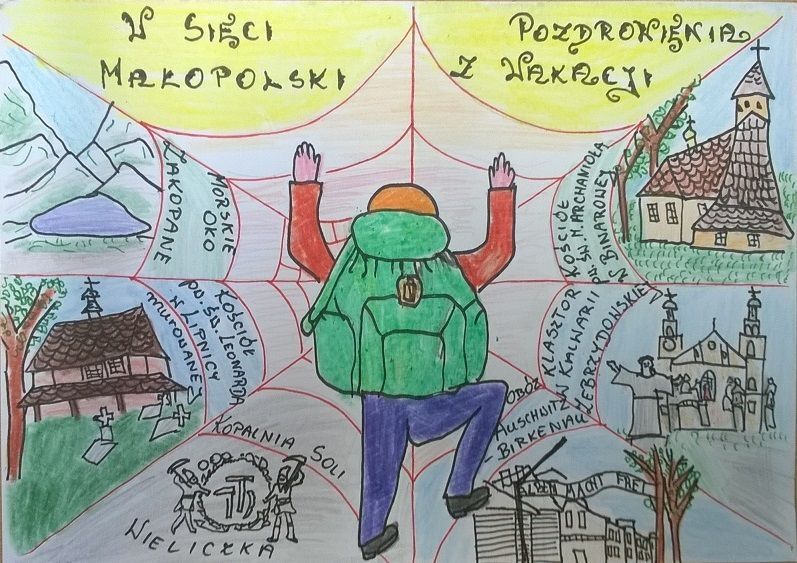 W SIĘCI
MAŁOPOLSKI
POZDROWIĘNIA
Z WAKACJI
ZAKOPANE
MORSKIE
OKO
KOŚCIÓŁ
PW. ŚW. M. ARCHANIOŁA
W BINAROWEJ
KOŚCIÓŁ
PW. ŚW. LEONARDA
W LIPNICY
MUROWANEJ
KLASZTOR
W KALWARII
ZEBRZYDOWSKIEJ
OBÓZ
AUSCHWITZ
- BIRKENAU
KOPALNIA SOLI
WIELICZKA
ARBEIT MACHT FREI